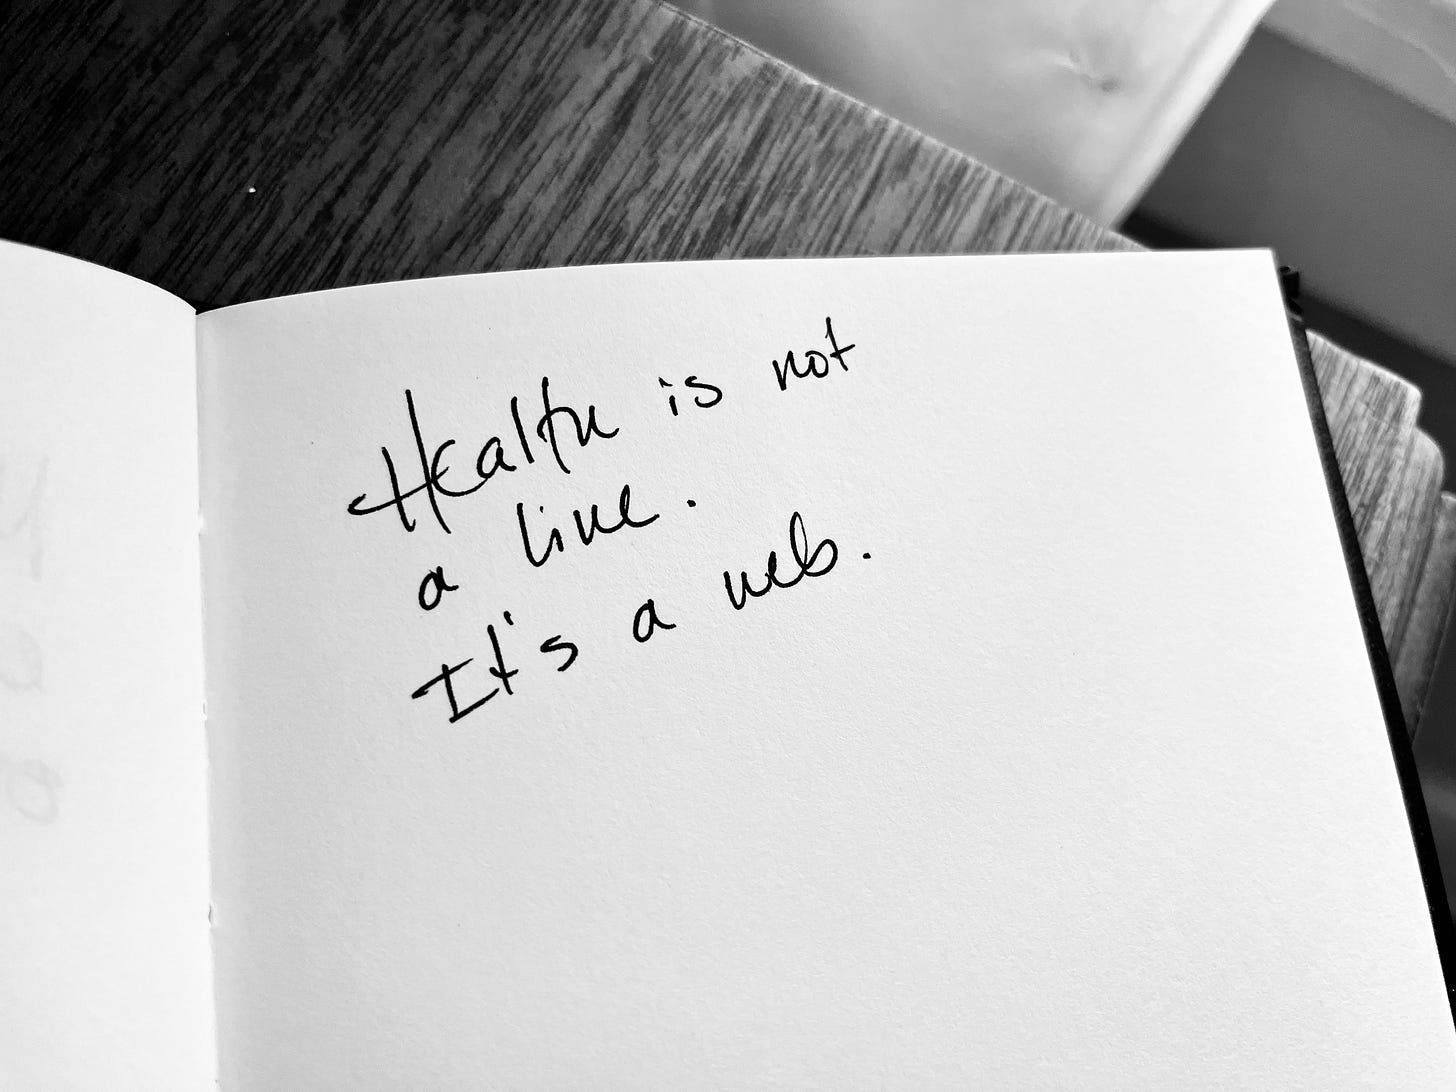 Health is not
a line.
It's a web.